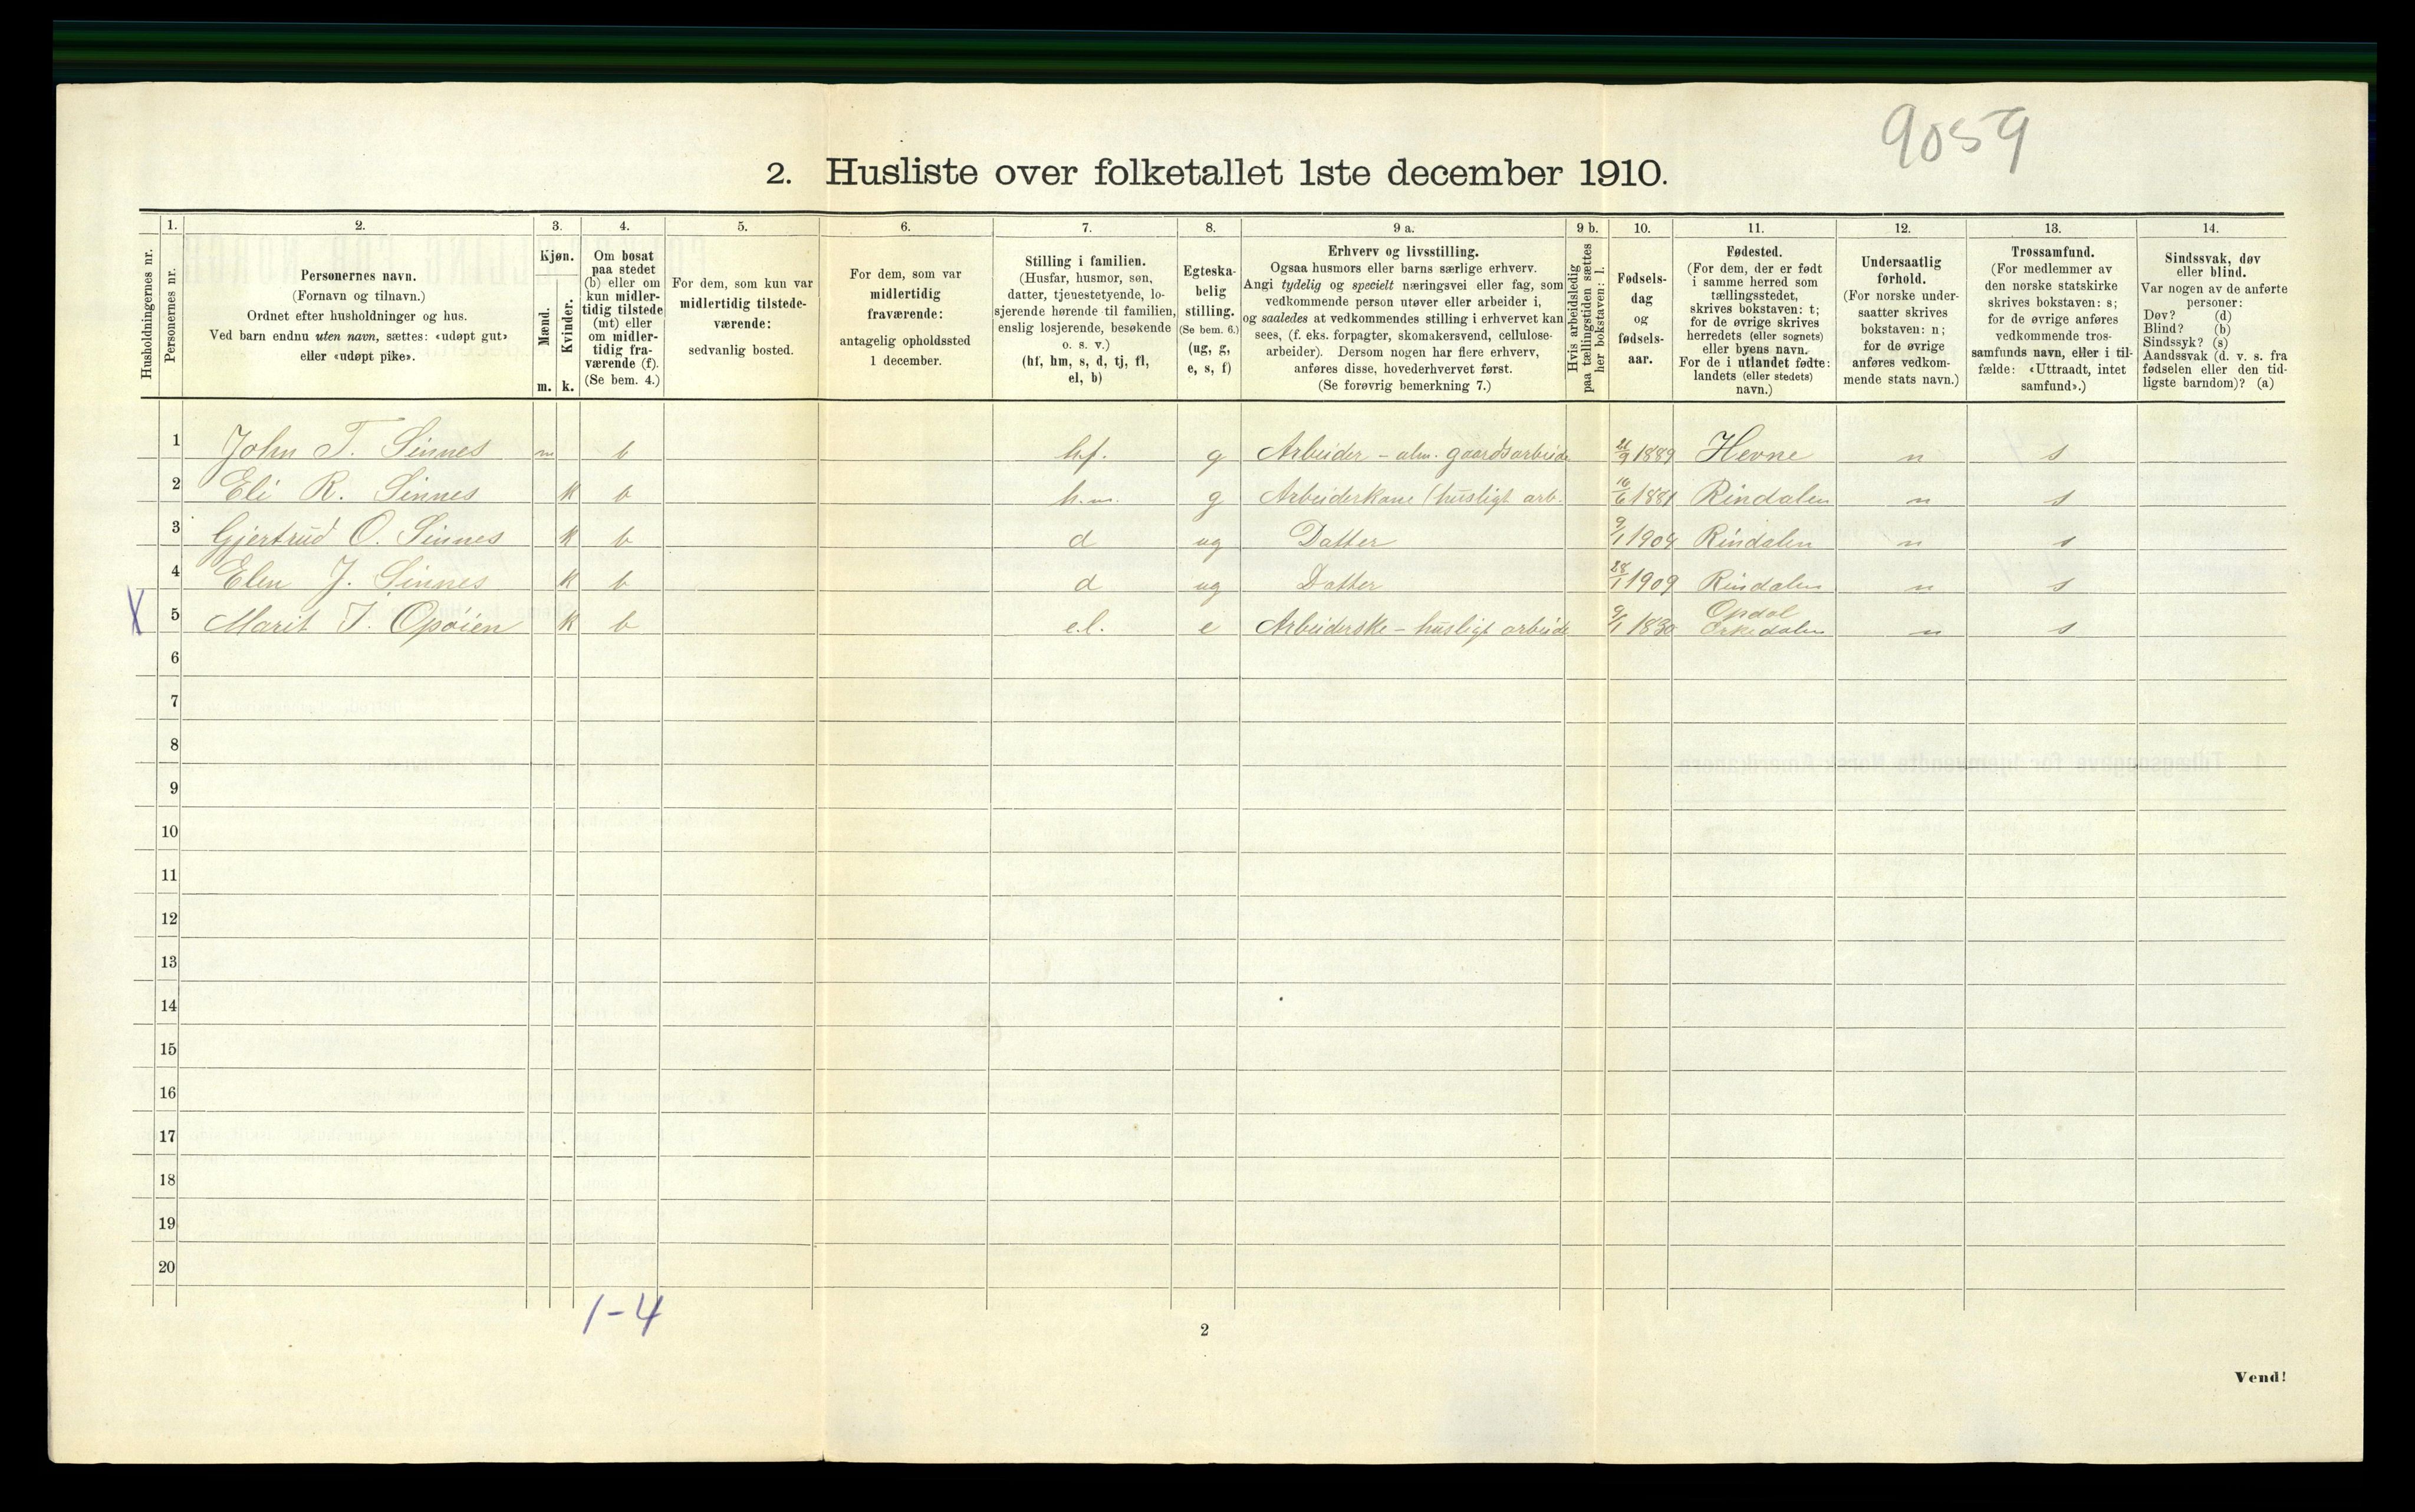 9059
2. Husliste over folketallet 1ste december 1910.
Husholdningernes nr.
1.
Personernes nr.
2.
Personernes navn.
(Fornavn og tilnavn.)
Ordnet efter husholdninger og hus.
Ved barn endnu uten navn, sættes: «udøpt gut»
eller «udøpt pike».
3.
Kjøn.
Mænd.
m.
Kvinder.
k.
4.
Om bosat
paa stedet
(b) eller om
kun midler-
tidig tilstede
(mt) eller
om midler-
tidig fra-
værende (f).
(Se bem. 4.)
5.
For dem, som kun var
midlertidig tilstede-
værende:
sedvanlig bosted.
6.
For dem, som var
midlertidig
fraværende:
antagelig opholdssted
1 december.
7.
Stilling i familien.
(Husfar, husmor, søn,
datter, tjenestetyende, lo-
sjerende hørende til familien,
enslig losjerende, besøkende
o. s. v.)
(hf, hm, s, d, tj, fl,
el, b)
8.
Egteska-
belig
stilling.
(Se bem. 6.)
(ug, g,
e, s, f)
9 a.
Erhverv og livsstilling.
Ogsaa husmors eller barns særlige erhverv.
Angi tydelig og specielt næringsvei eller fag, som
vedkommende person utøver eller arbeider i,
og saaledes at vedkommendes stilling i erhvervet kan
sees, (f. eks. forpagter, skomakersvend, cellulose-
arbeider). Dersom nogen har flere erhverv,
anføres disse, hovederhvervet først.
(Se forøvrig bemerkning 7.)
9 b.
Hvis arbeidsledig
paa tællingstiden sættes
her bokstaven: l.
10.
Fødsels-
dag
og
fødsels-
aar.
11.
Fødested.
(For dem, der er født
i samme herred som
tællingsstedet,
skrives bokstaven: t;
for de øvrige skrives
herredets (eller sognets)
eller byens navn.
For de i utlandet fødte:
landets (eller stedets)
navn.)
12.
Undersaatlig
forhold.
(For norske under-
saatter skrives
bokstaven: n;
for de øvrige
anføres vedkom-
mende stats navn.)
13.
Trossamfund.
(For medlemmer av
den norske statskirke
skrives bokstaven: s;
for de øvrige anføres
vedkommende tros-
samfunds navn, eller i til-
fælde: «Uttraadt, intet
samfund».)
14.
Sindssvak, døv
eller blind.
Var nogen av de anførte
personer:
Døv? (d)
Blind? (b)
Sindssyk? (s)
Aandssvak (d. v. s. fra
fødselen eller den tid-
ligste barndom)? (a)
1 John T. Sinnes m b hf. g Arbeider - alm. gaardsarbeide 1889 Hevne n s
2 Eli R. Sinnes k b h.m. g Arbeiderkone (husligt arb. 16/6 1881 Rindalen n s
3 Gjertrud O. Sinnes k b d ug Datter 9/1 1904 Rindalen n s
4 Elen J. Sinnes k b d ug Datter 28/1 1909 Rindalen n s
X 5 Marit J. Opøien k b e.l. e Arbeiderske - husligt arbeide 9/1 1830 Opdal Orkedalen n s
6
7
8
9
10
11
12
13
14
15
16
17
18
19
20
1-4
2
Vend!